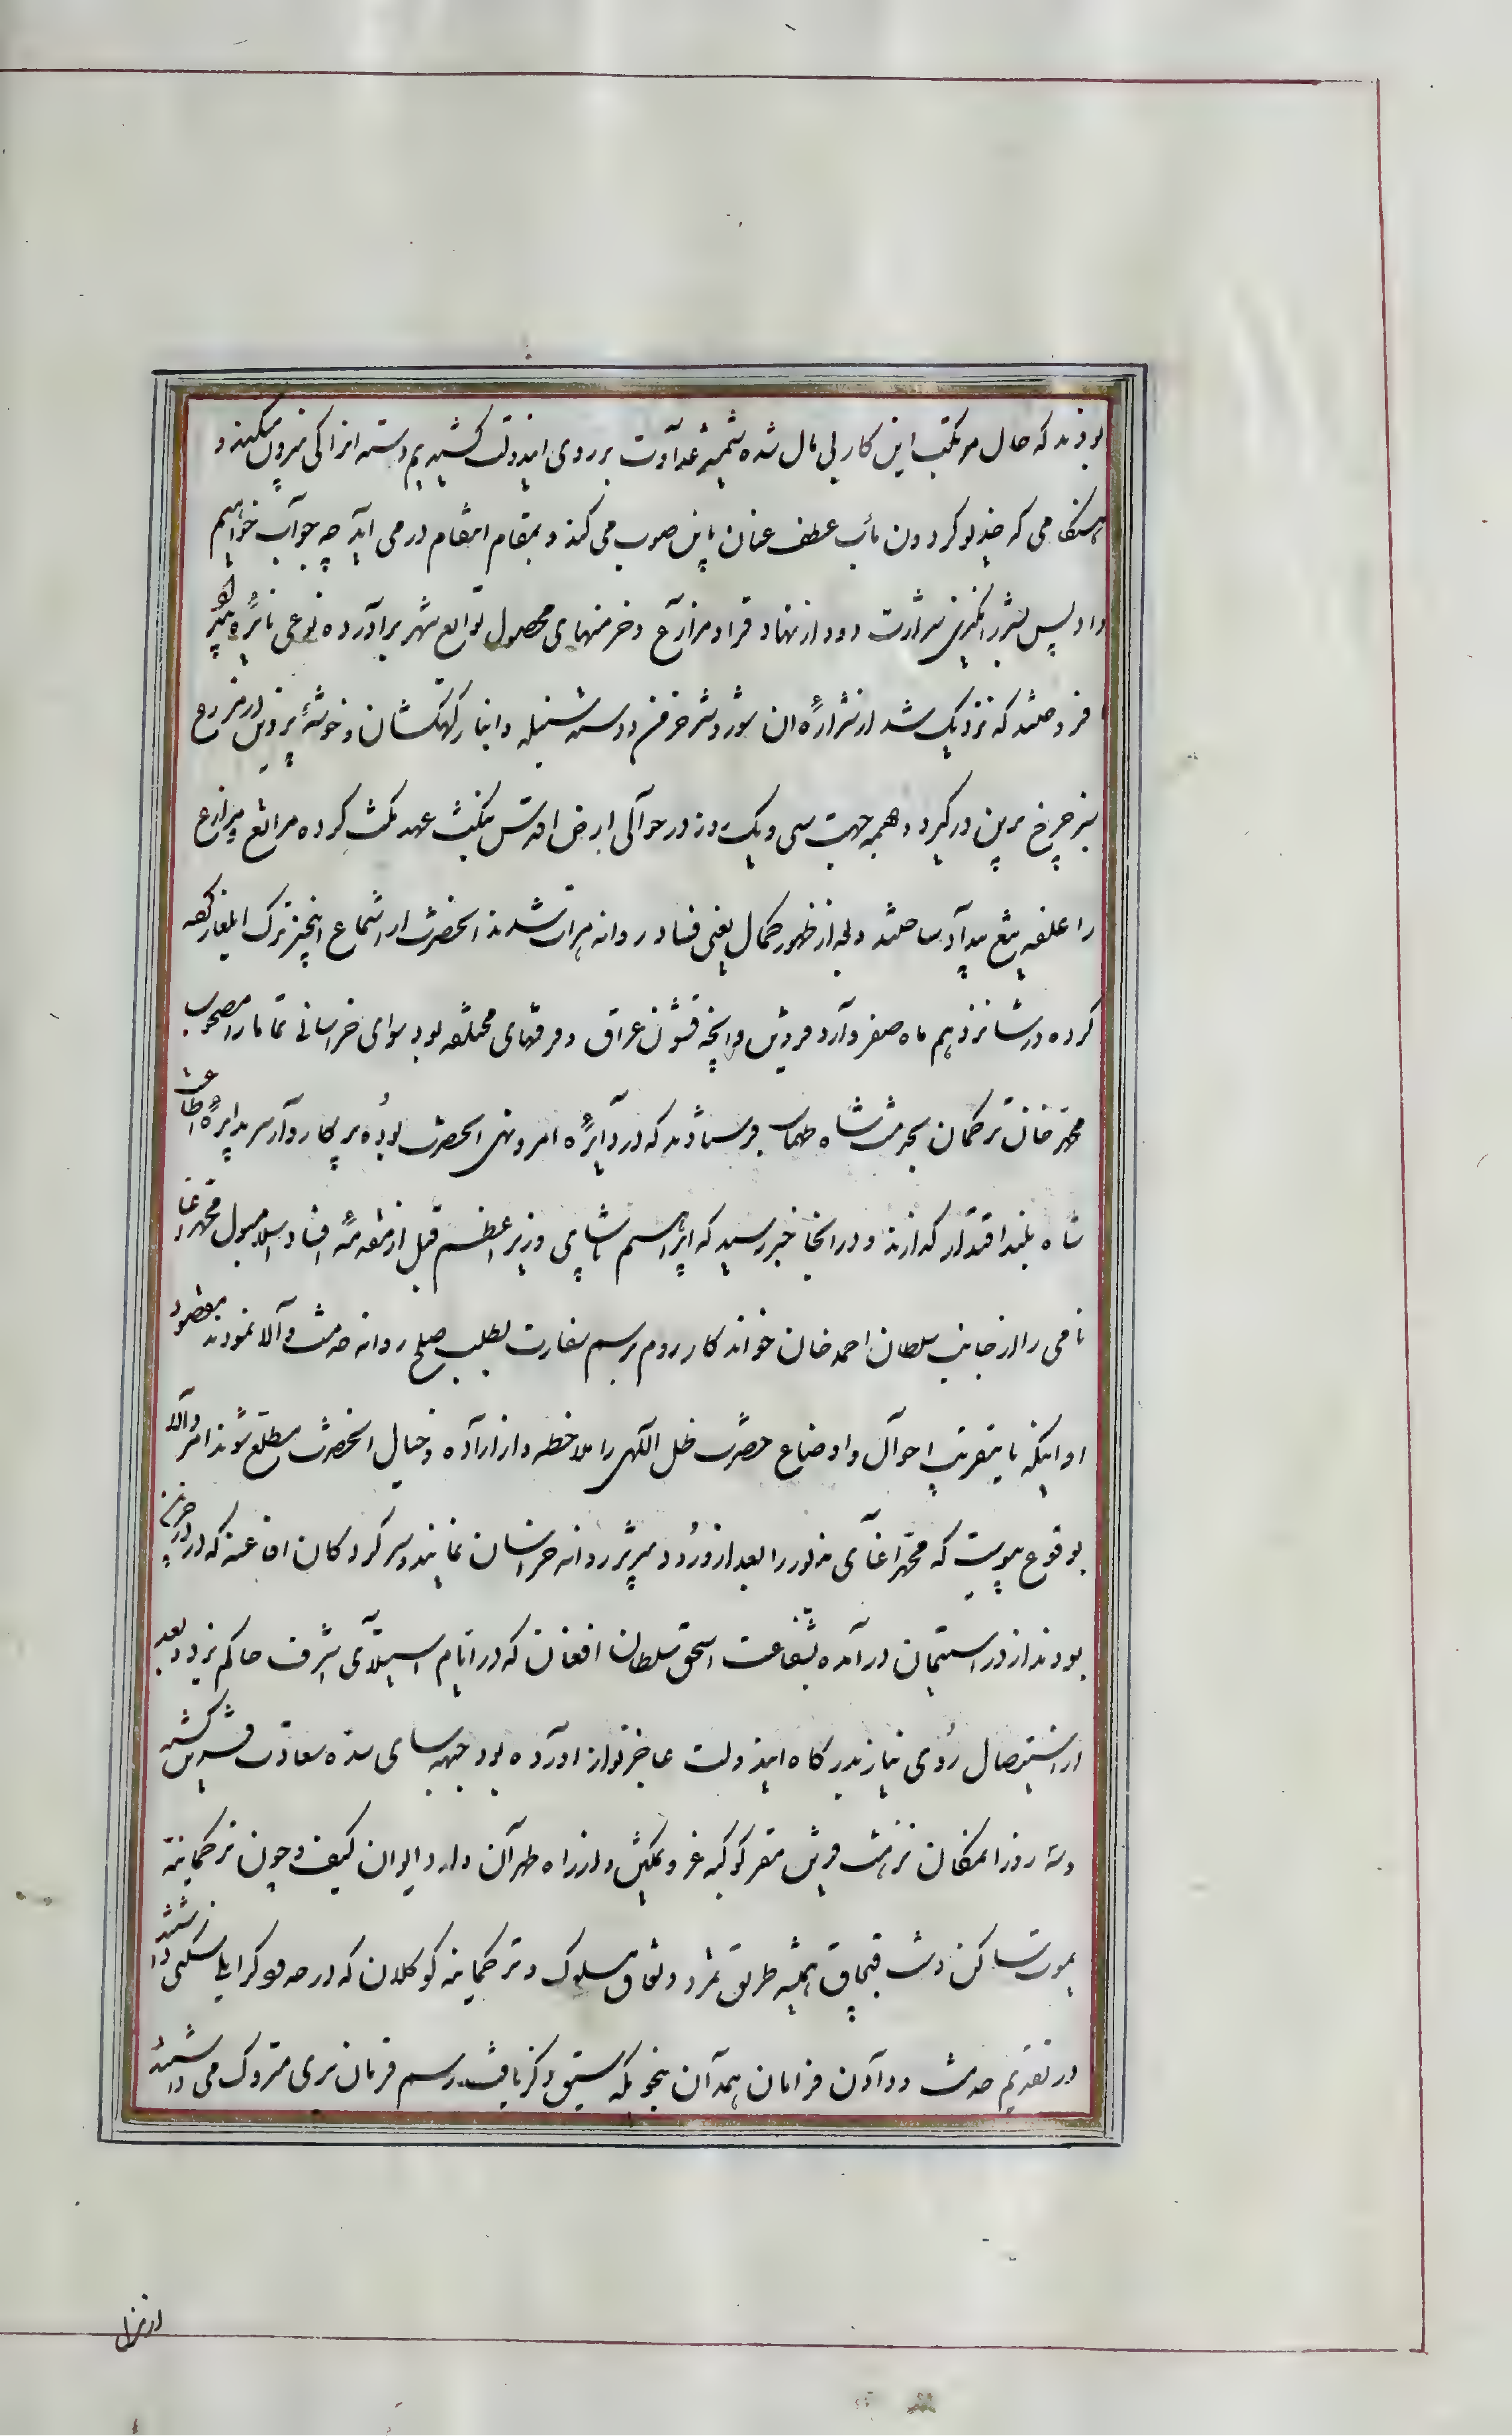 بودند که حال مرتکب این کار بی مال شده شمشیر عداوت بر روی ایندولت کشیدیم دسته افراکی منزول میکنند و
هنگامی که خدیو گردون مآب عطف عنان باین صوب می کند و بمقام انتقام در می آید چه جواب خواهیم
داد پس بشررانگیزی شرارت دود از نهاد قرا و مزارع و خرمنهای محصول توابع شهر برآورده نوعی نایره
فروختند که نزدیک شد از شراره ان شور و شر خرمن و دسته سنبله و انبار کهکشان و خوشه پروین در مزرع
سبز چرخ برین درگیرد و همه جهت سی و یک روز در حوالی ارض اقدس مکث عهد نکث کرده مراتع و مزارع
را علف تیغ بیداد ساختند و بعد از ظهور کمال یعنی فساد روانه هرات شدند انحضرت از استماع اینخبر ترک ایلغار
کرده در شانزدهم ماه صفر وارد قزوین و انچه قشون عراق و فرقهای مختلفه بود سوای خراسانی تماما را مصحوب
محمد خان ترکمان بخدمت شاه طهماسب فرستادند که در دایره امر و نهی انحضرت بوده پرکار وار سر بدایره اطاعت
شاه بلند اقتدار گذارند و در انجا خبر رسید که ابراهیم پاشای وزیر اعظم قبل از مقدمه افساد اسلامبول محمد آغا
نامی را از جانب سلطان احمد خان خواندکار روم برسم سفارت بطلب صلح روانه خدمت والا نمودند مقصود
او اینکه باینتقریب احوال و اوضاع حضرت ظل اللهی را ملاحظه و از اراده و خیال انحضرت مطلع شوند امر والا
بوقوع پیوست که محمد آغای مذبور را بعد از ورود تبریز روانه خراسان نمایند و سرکردگان افاغنه که در درجزین
بودند از در استیمان درآمده بشفاعت اسحق سلطان افغان که در ایام استیلای اشرف حاکم یزد و بعد
از استیصال روی نیاز بدرگاه ایندولت عاجز نواز اورده بود جبهه سای سده سعادت قرین گشته
و سه روز انمکان نزهت قرین مقر کوکبه عز و تمکین و از راه طهران وارد ایوان کیف و چون ترکمانیه
یموت ساکن دشت قبچاق همیشه طریق تمرد و نفاق مسلوک و ترکمانیه کوکلان که در حدود کرایلی سکنی داشتند
در تقدیم خدمت و دادن فرامان همدان بنحویکه سبق ذکر یافت رسم فرمان بری متروک می داشتند
از منزل